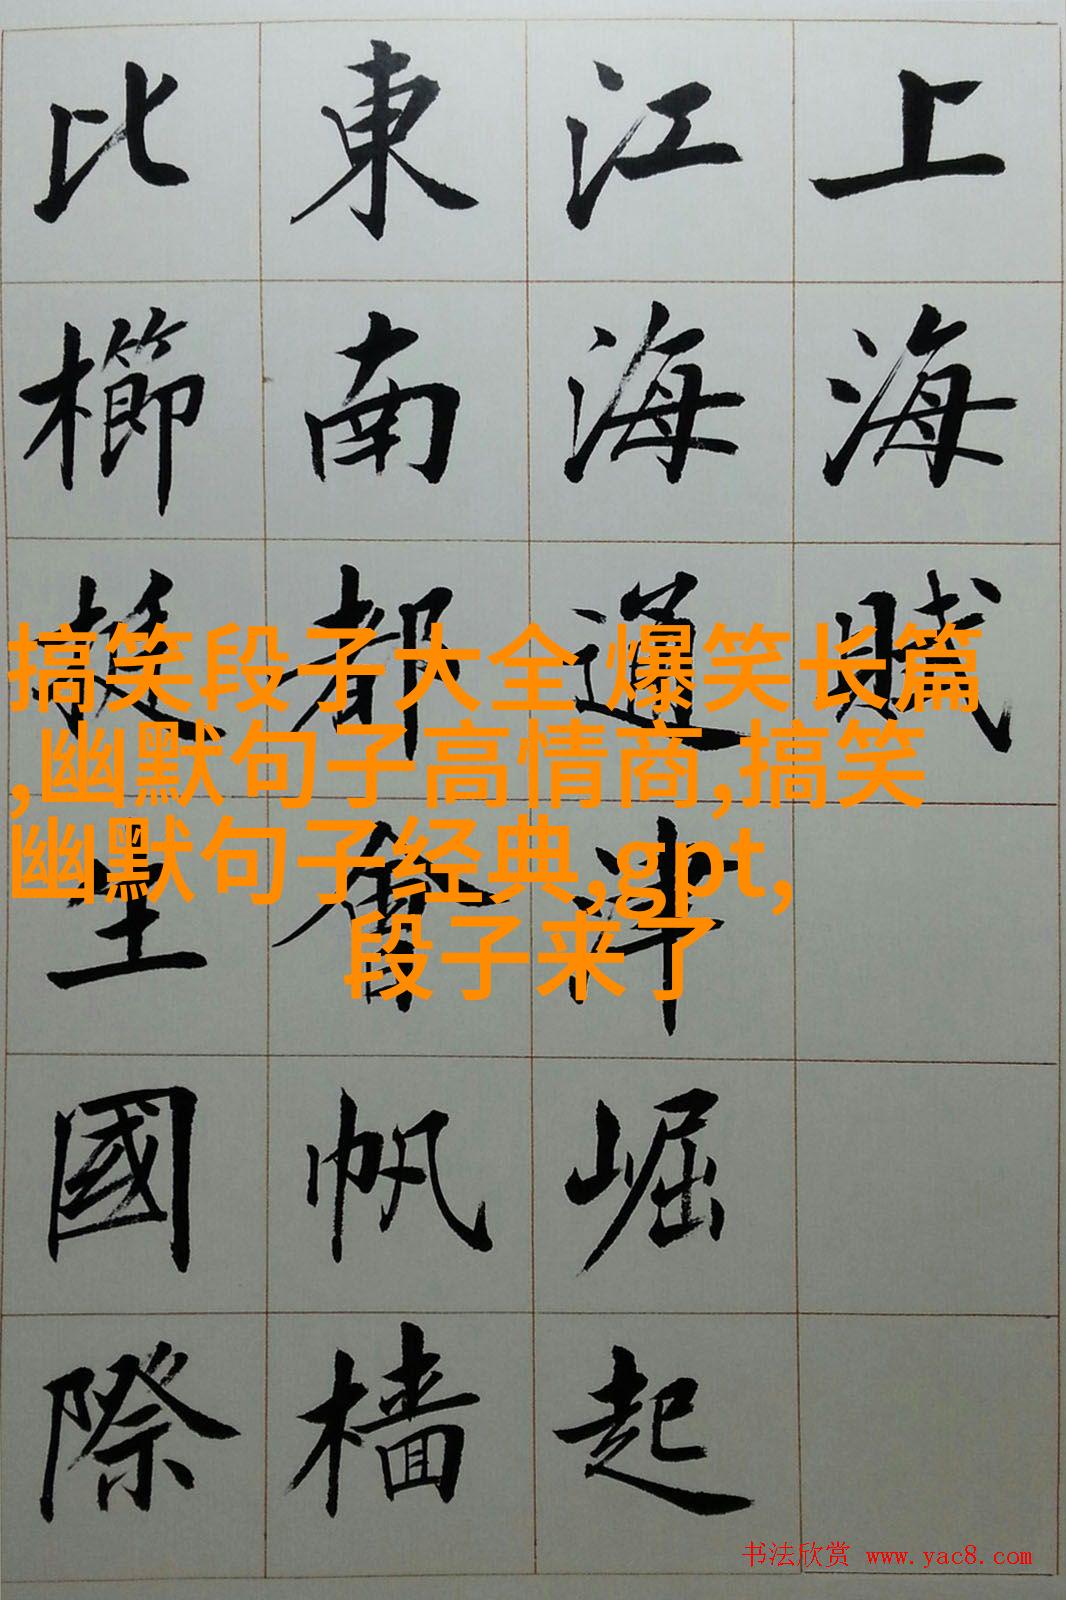 上海賦
江海通津崛起
東南都會帆檣
比櫛挺國際
搞笑段子大全 爆笑长篇
,幽默句子高情商,搞笑
幽默句子经典,gpt,
段子来了
书法欣赏 www.yac8.com